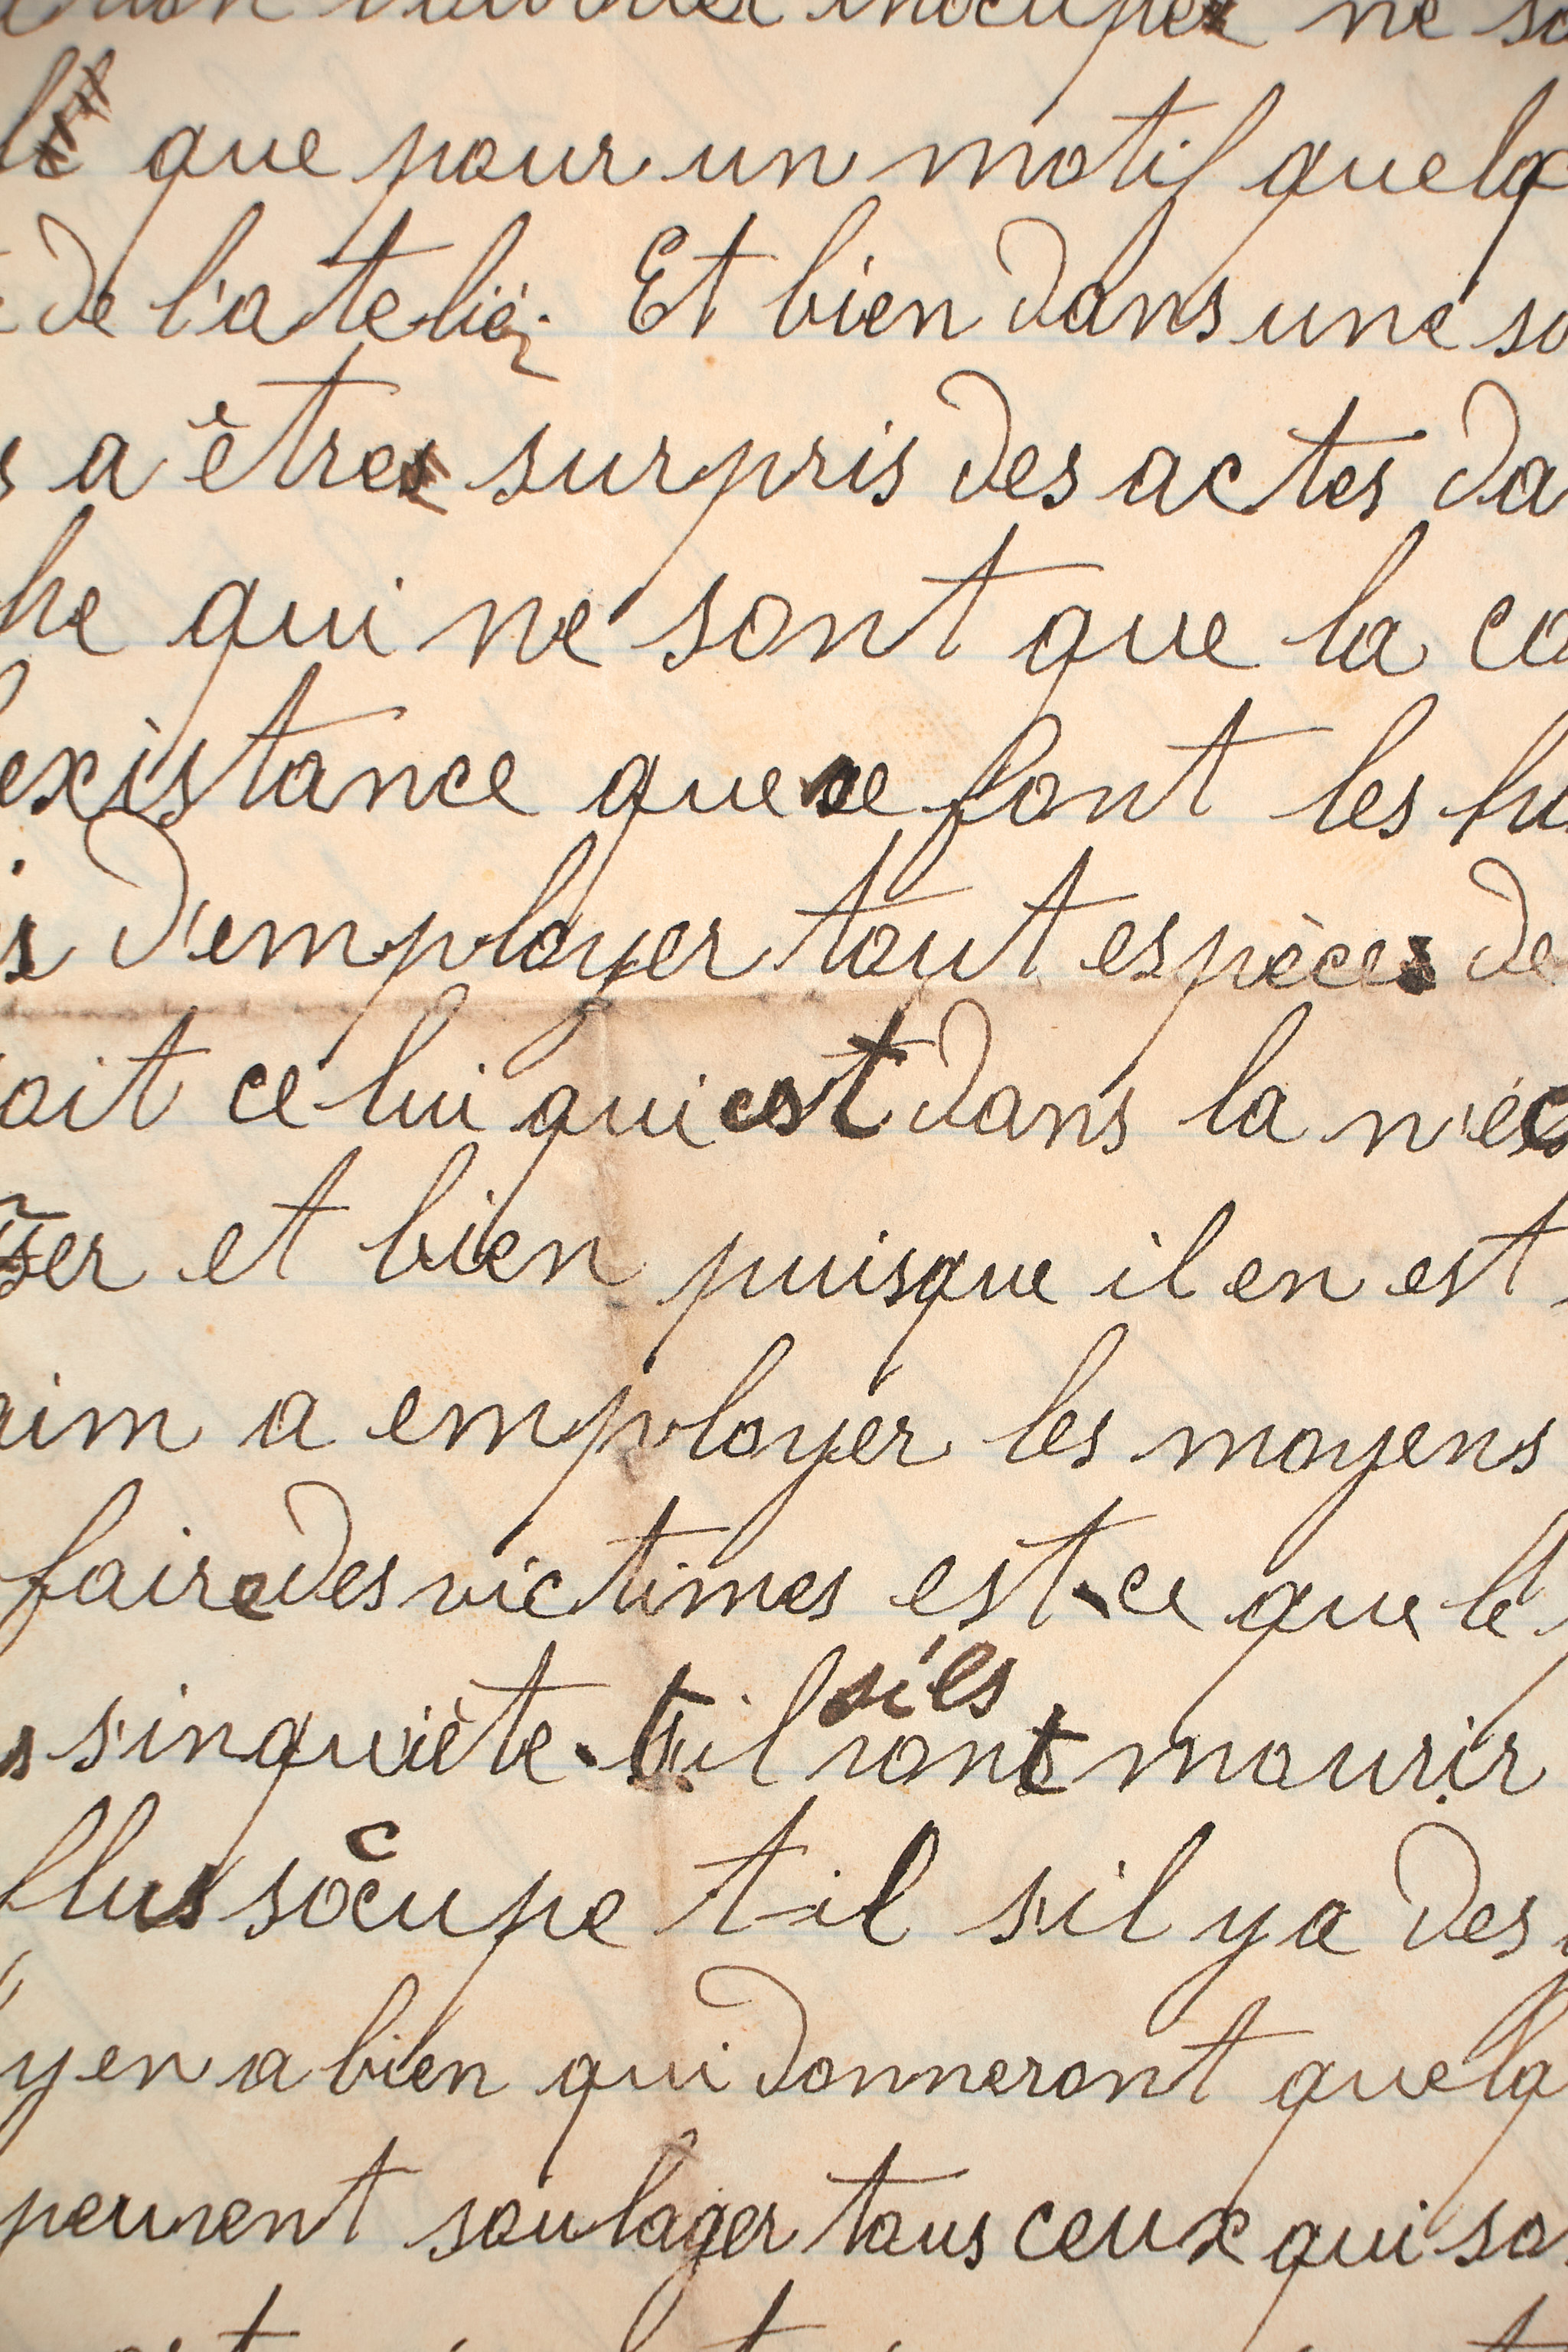 inocupés ne so
que pour un motif quelq
de l'atelier. Et bien dans une so
s a êtres surpris des actes da
he qui ne sont que la co
existance que se font les hu
s d'employer tout espèces de
oit celui qui est dans la néc
ser et bien puisque il en est
aim a employer les moyens
faire des victimes est-ce que le
sils
s s'inquiète-t-il ront mourir
Plus socupe t-il s'il y a des
y en a bien qui donneront quelq
peuvent soulager tous ceux qui so